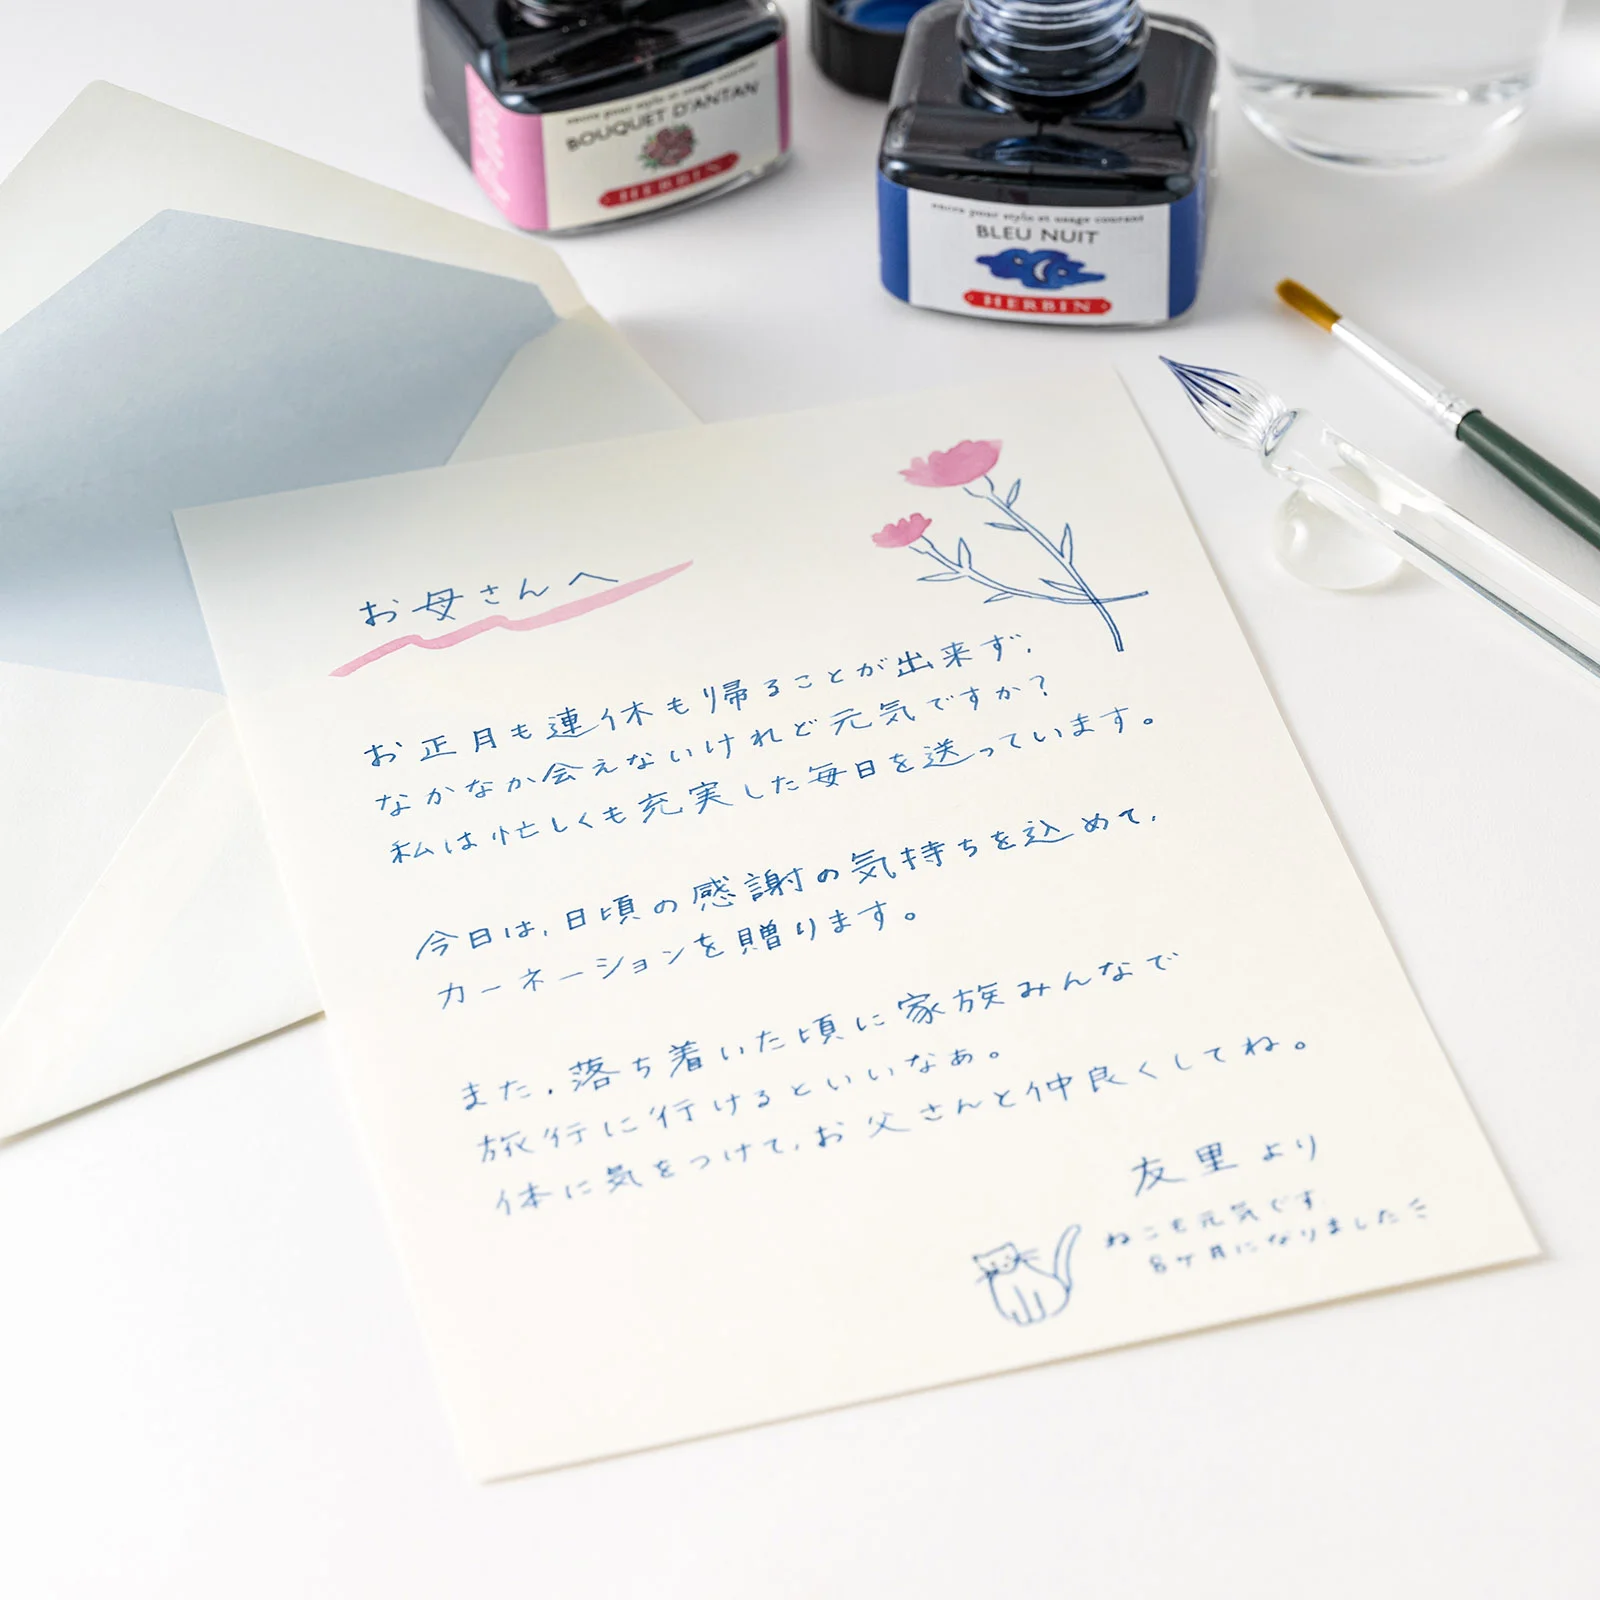 encre pour stylo et usage courant
BOUQUET D'ANTAN
HERBIN
encre pour stylo et usage courant
BLEU NUIT
HERBIN
お母さんへ
お正月も連休も帰ることが出来ず、
なかなか会えないけれど元気ですか？
私は忙しくも充実した毎日を送っています。
今日は、日頃の感謝の気持ちを込めて、
カーネーションを贈ります。
また、落ち着いた頃に家族みんなで
旅行に行けるといいなぁ。
体に気をつけて、お父さんと仲良くしてね。
友里より
ねこも元気です
8ヶ月になりました